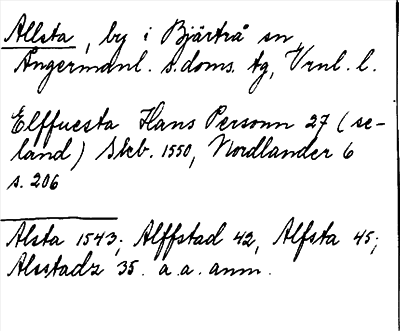 Allsta, by i Bjärtrå sn,
Ångermanl. s. doms. tg, Vrnl. l.
Elffuesta Hans Personn 27 (se-
land) Skb. 1550, Nordlander 6
s. 206
Alsta 1543; Alffstad 42, Alfsta 45;
Alsstadz 35. a. a. anm.